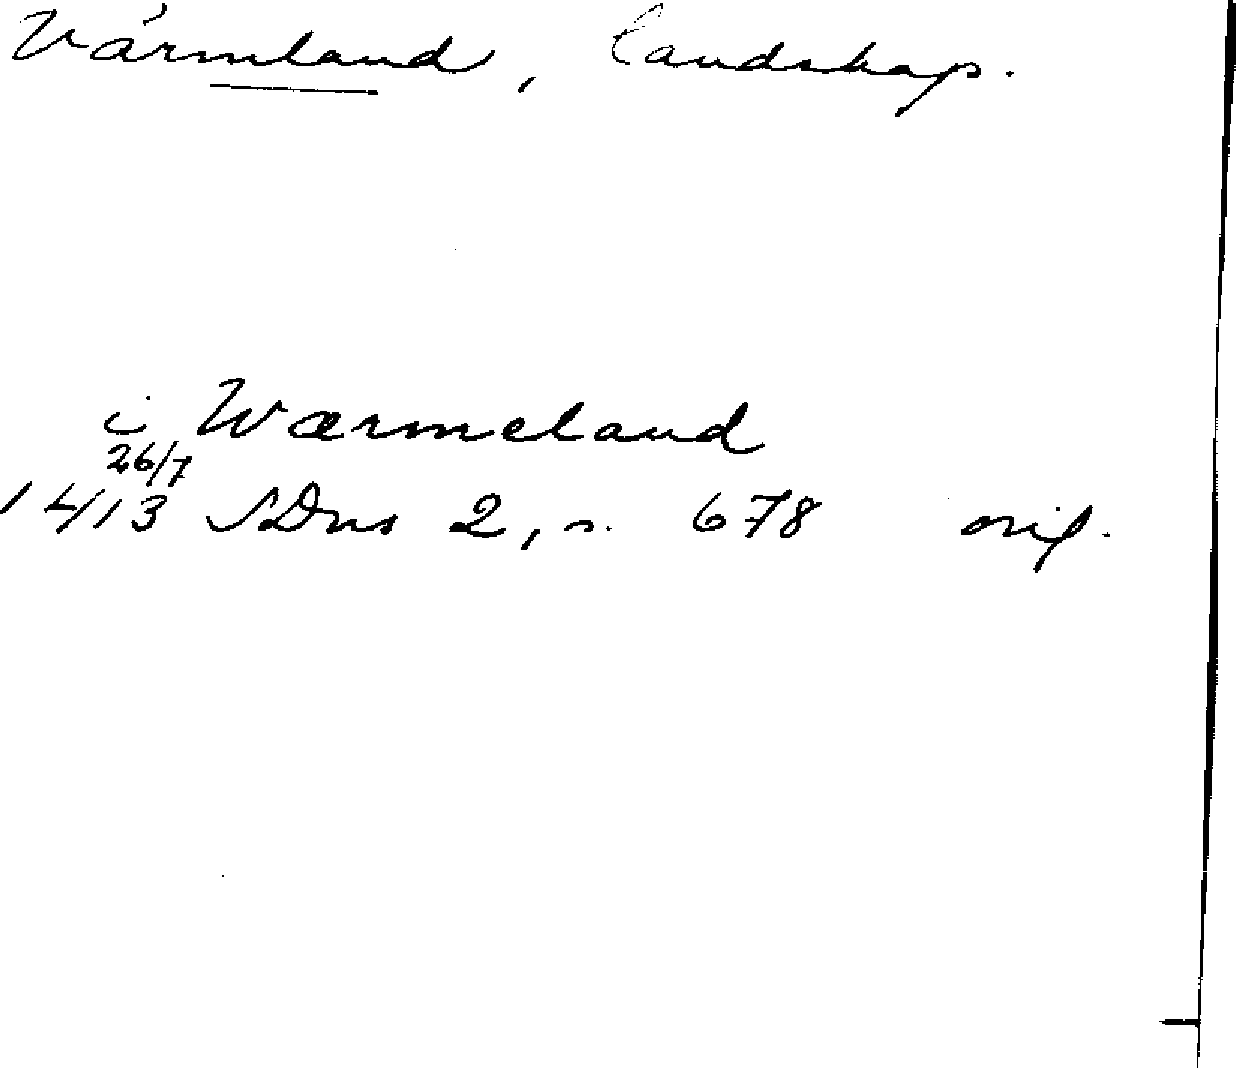 Värmland, landskap.
i Wærmeland
26/7
1413 SDns 2, s. 678 orig.